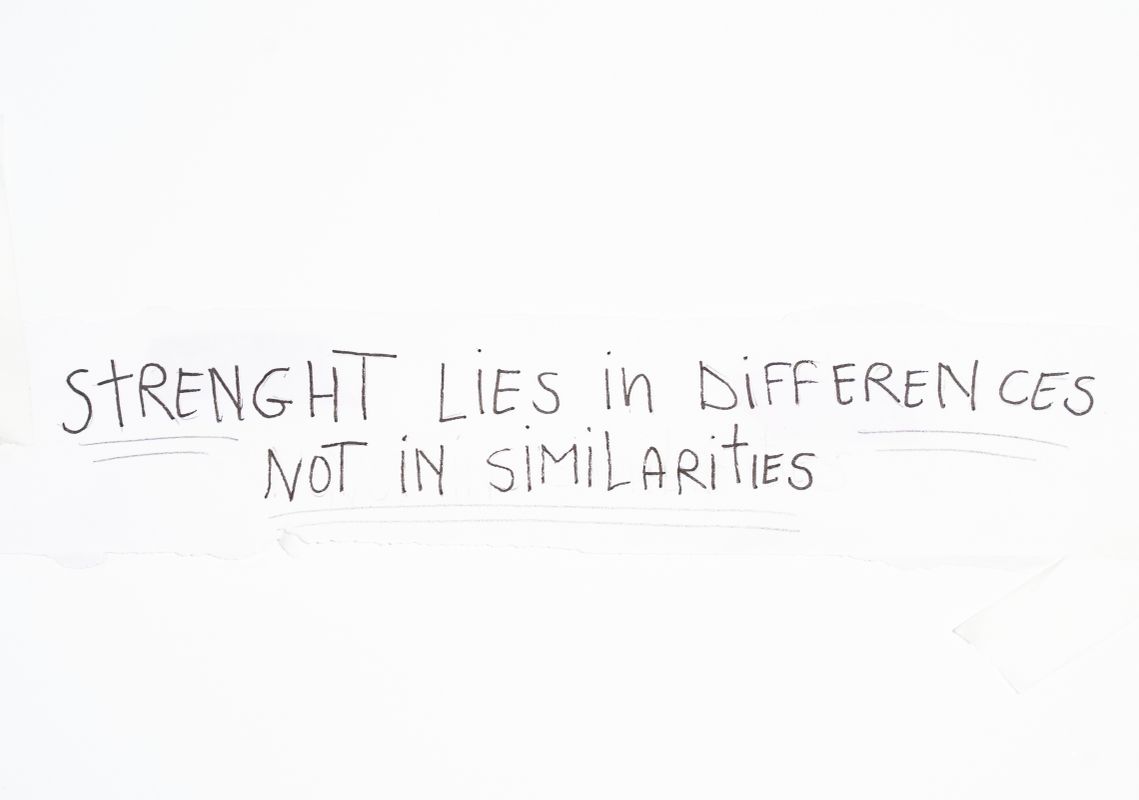 STRENGHT LiES in DiFFERENCES
NOT iN SiMiLARitIES